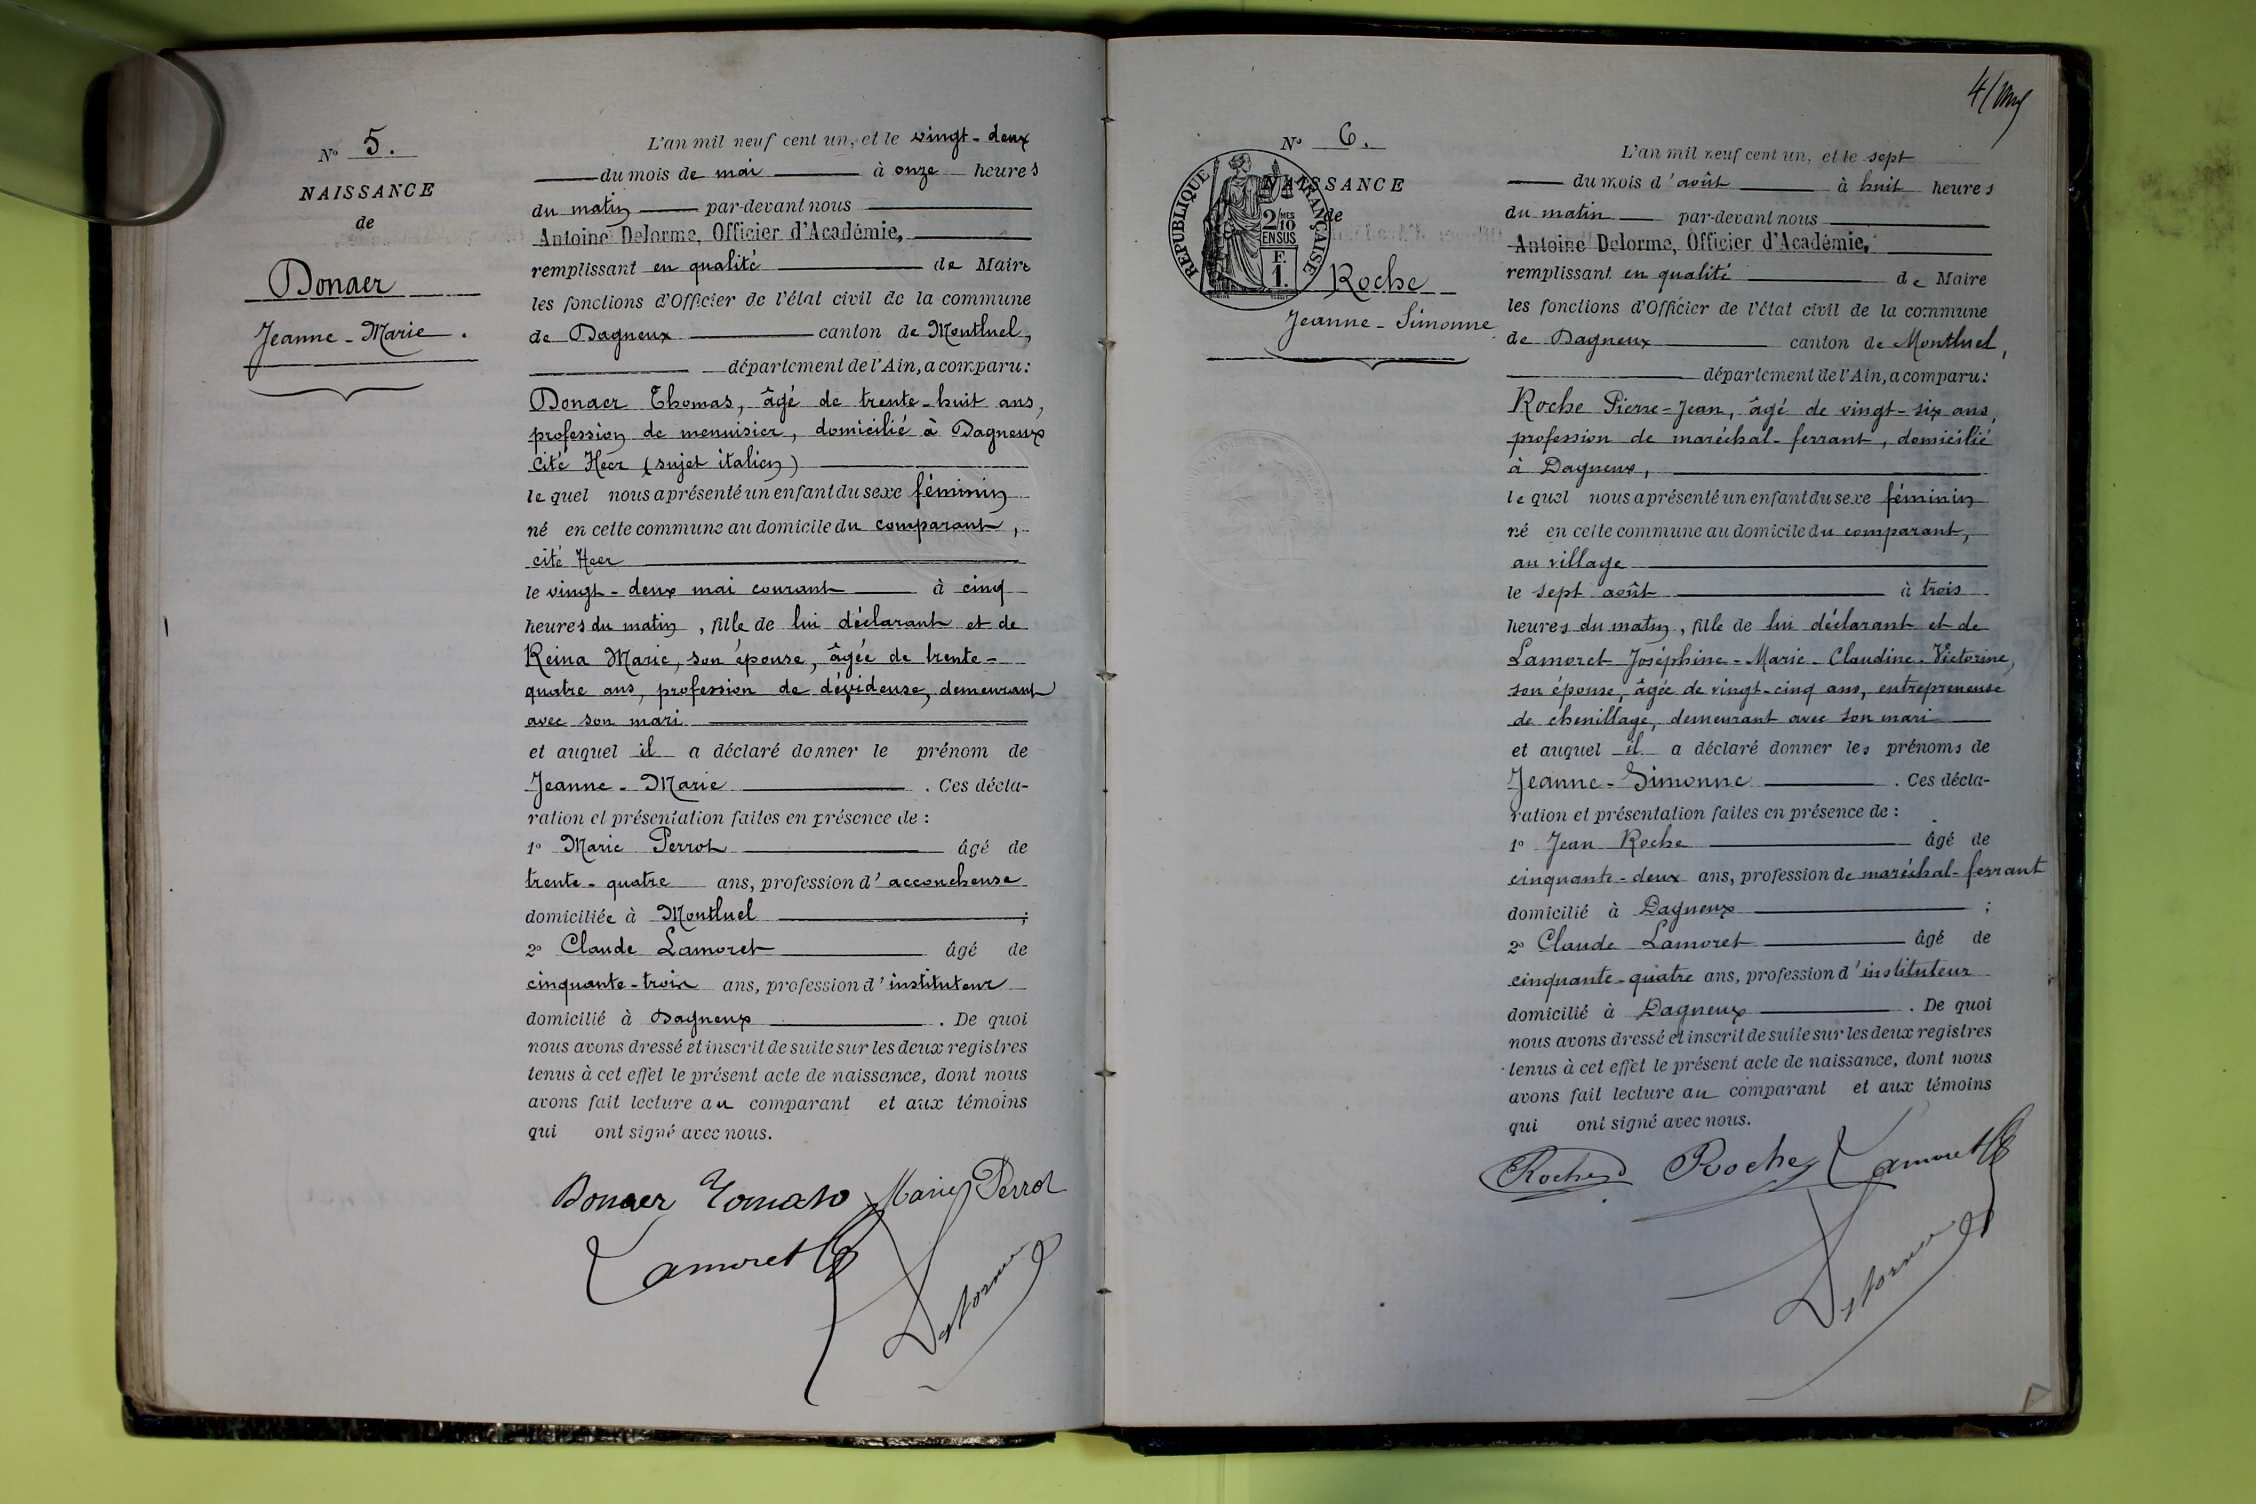 N° 5.
NAISSANCE
de
Donaer
Jeanne-Marie.
L'an mil neuf cent un, et le vingt-deux
du mois de mai à onze heures
du matin par-devant nous
Antoine Delorme, Officier d'Académie,
remplissant en qualité de Maire
les fonctions d'Officier de l'état civil de la commune
de Dagneux canton de Montluel,
département de l'Ain, a comparu:
Donaer Thomas, âgé de trente-huit ans,
profession de menuisier, domicilié à Dagneux
cité Heer (sujet italien)
lequel nous a présenté un enfant du sexe féminin
né en cette commune au domicile du comparant,
cité Heer
le vingt-deux mai courant à cinq
heures du matin, fille de lui déclarant et de
Reina Marie, son épouse, âgée de trente-
quatre ans, profession de dévideuse, demeurant
avec son mari
et auquel il a déclaré donner le prénom de
Jeanne-Marie. Ces décla-
ration et présentation faites en présence de :
1° Marie Perrot âgé de
trente-quatre ans, profession d'accoucheuse
domiciliée à Montluel ;
2° Claude Lamoret âgé de
cinquante-trois ans, profession d'instituteur
domicilié à Dagneux. De quoi
nous avons dressé et inscrit de suite sur les deux registres
tenus à cet effet le présent acte de naissance, dont nous
avons fait lecture au comparant et aux témoins
qui ont signé avec nous.
Donaer Tomaso Marie Perrot
Lamoret
Delorme
4/
N° 6.
RÉPUBLIQUE FRANÇAISE
2/10 MES
EN SUS
F.
1.
NAISSANCE
de
Roche
Jeanne-Simonne
L'an mil neuf cent un, et le sept
du mois d'août à huit heures
du matin par-devant nous
Antoine Delorme, Officier d'Académie,
remplissant en qualité de Maire
les fonctions d'Officier de l'état civil de la commune
de Dagneux canton de Montluel,
département de l'Ain, a comparu:
Roche Pierre-Jean, âgé de vingt-six ans,
profession de maréchal-ferrant, domicilié
à Dagneux,
lequel nous a présenté un enfant du sexe féminin
né en cette commune au domicile du comparant,
au village
le sept août à trois
heures du matin, fille de lui déclarant et de
Lamoret Joséphine-Marie-Claudine-Victorine,
son épouse, âgée de vingt-cinq ans, entrepreneuse
de chenillage, demeurant avec son mari
et auquel il a déclaré donner les prénoms de
Jeanne-Simonne. Ces décla-
ration et présentation faites en présence de :
1° Jean Roche âgé de
cinquante-deux ans, profession de maréchal-ferrant
domicilié à Dagneux ;
2° Claude Lamoret âgé de
cinquante-quatre ans, profession d'instituteur
domicilié à Dagneux. De quoi
nous avons dressé et inscrit de suite sur les deux registres
tenus à cet effet le présent acte de naissance, dont nous
avons fait lecture au comparant et aux témoins
qui ont signé avec nous.
Roche Roche Lamoret
Delorme